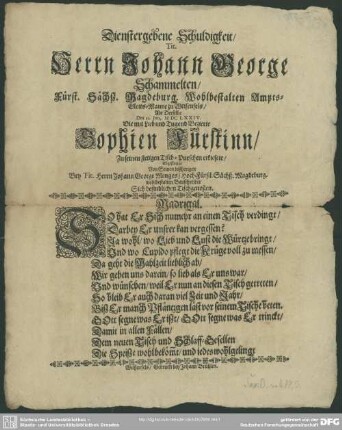 Dienstergebene Schuldigkeit/
Tit.
Herrn Johann George
Schammelten/
Fürst. Sächß. Magdeburg. Wohlbestalten Ampts-
zu Weissenfels/
Als Derselbe
Die mit Lieb und Tugend Begabte
Sophien Fürstinn/
Zu seinem stetigen Tisch-
Bey Tit. Herrn Johann George Menges/ Hoch-Fürstl. Sächß. Magdeburg.
Tischgenossen.
Madrigal.
SO hat Er Sich numehr an einen Tisch verdingt/
Darbey Er unsrer kan vergessen?
Ja wohl/ wo Lieb und Lust die Würtze bringt/
Und wo Cupido pflegt die Krüge voll zu messen/
Da geht die Mahlzeit lieblich ab/
Wir geben uns darein/ so lieb als Er uns war/
Und wünschen/ weil Er nun an diesen Tisch getreten/
So bleib Er auch daran viel Zeit und Jahr/
Biß Er manch Pfläntzgen last vor seinem Tische beten.
GOtt segne was Er ißt/ GOtt segne was Er trinckt/
Damit in allen Fällen/
Dem neuen Tisch und Schlaff-Gesellen
Die Speise wohl bekömt/ und alles wohl gelingt
Weissenfels/ Gedruckt bey Johann Brühlen.